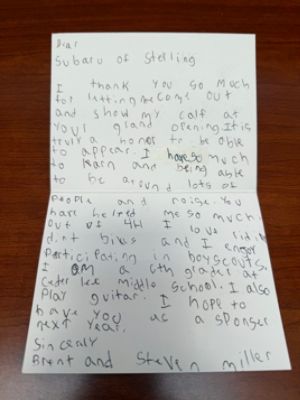 Dear
Subaru of Sterling
I thank you so much
for letting me come out
and show my calf at
your grand opening. It is
truly a honor to be able
to appear. I have so much
to learn and being able
to be around lots of
people and noise. You
have helped me so much.
Out of 4H I love riding
dirt bikes and I enjoy
Participating in boyscouts.
I am a 6th grader at
Ceder lee middle school. I also
Play guitar. I hope to
have you as a sponser
next year.
Sincealy
Brent and Steven miller